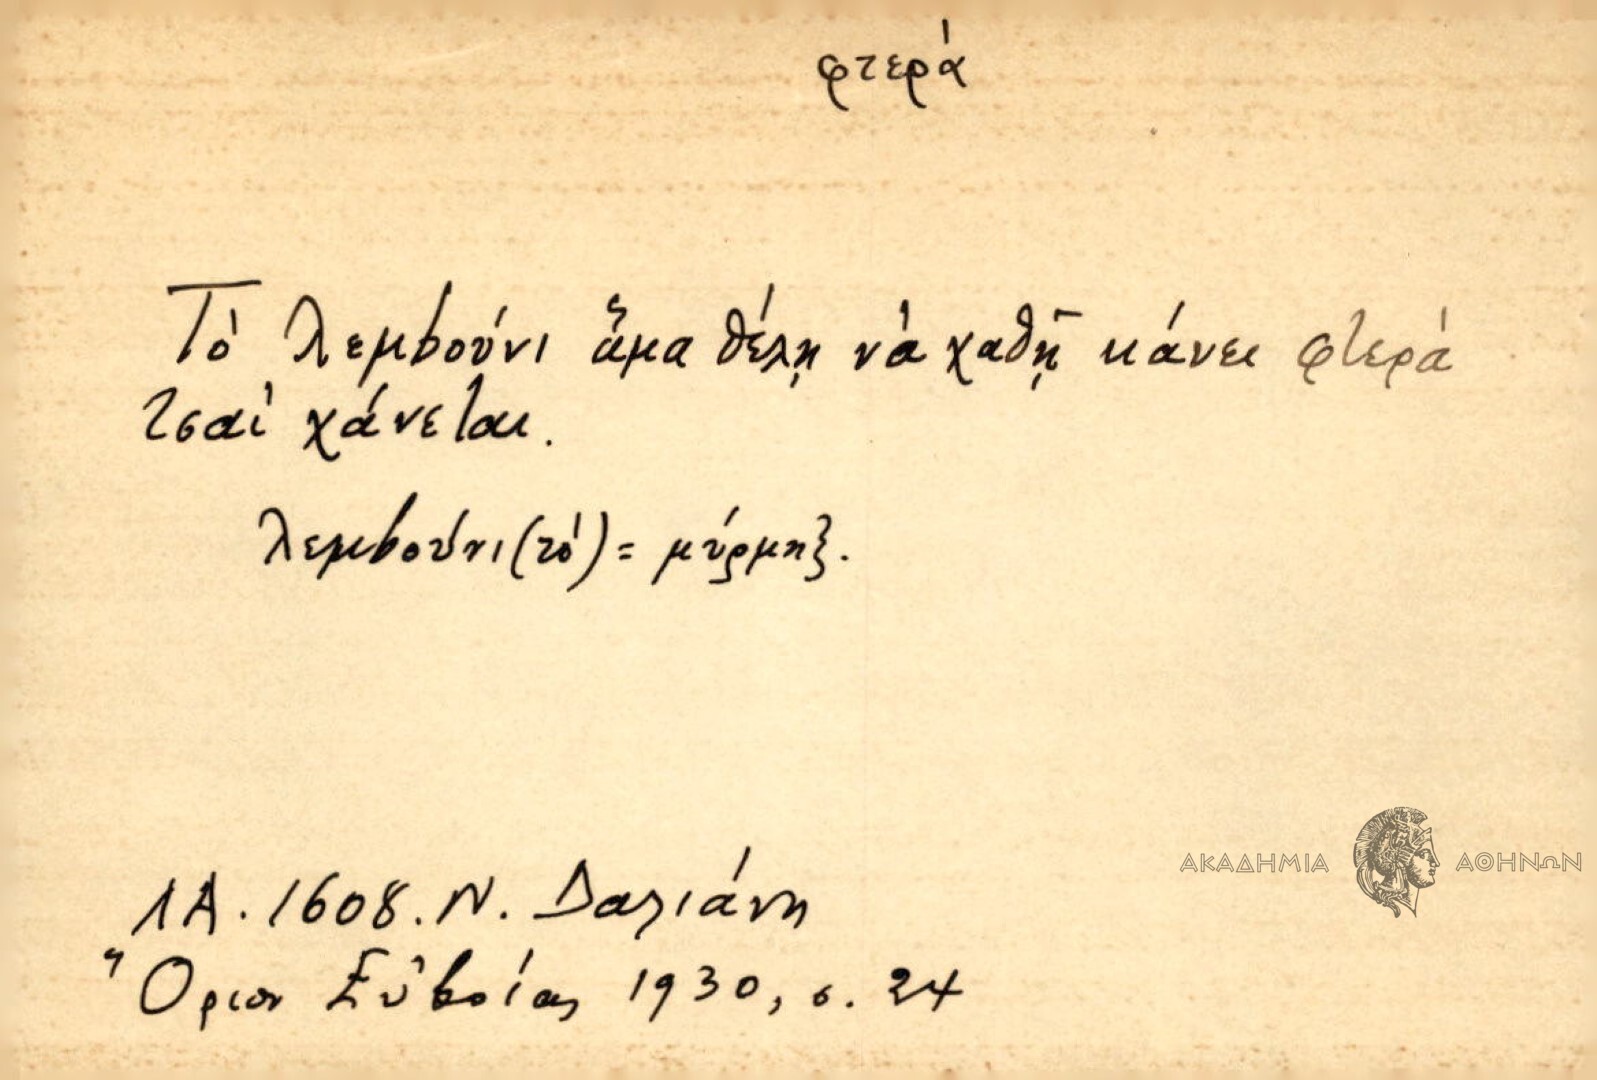 φτερά
Τὸ λεμβούνι ἅμα θέλῃ νὰ χαθῇ κάνει φτερά
τσαὶ χάνεται.
λεμβούνι (τὸ) = μύρμηξ.
ΑΚΑΔΗΜΙΑ ΑΘΗΝΩΝ
ΛΑ. 1608. Ν. Δαλιάνη
Ὄριον Εὐβοίας 1930, σ. 24